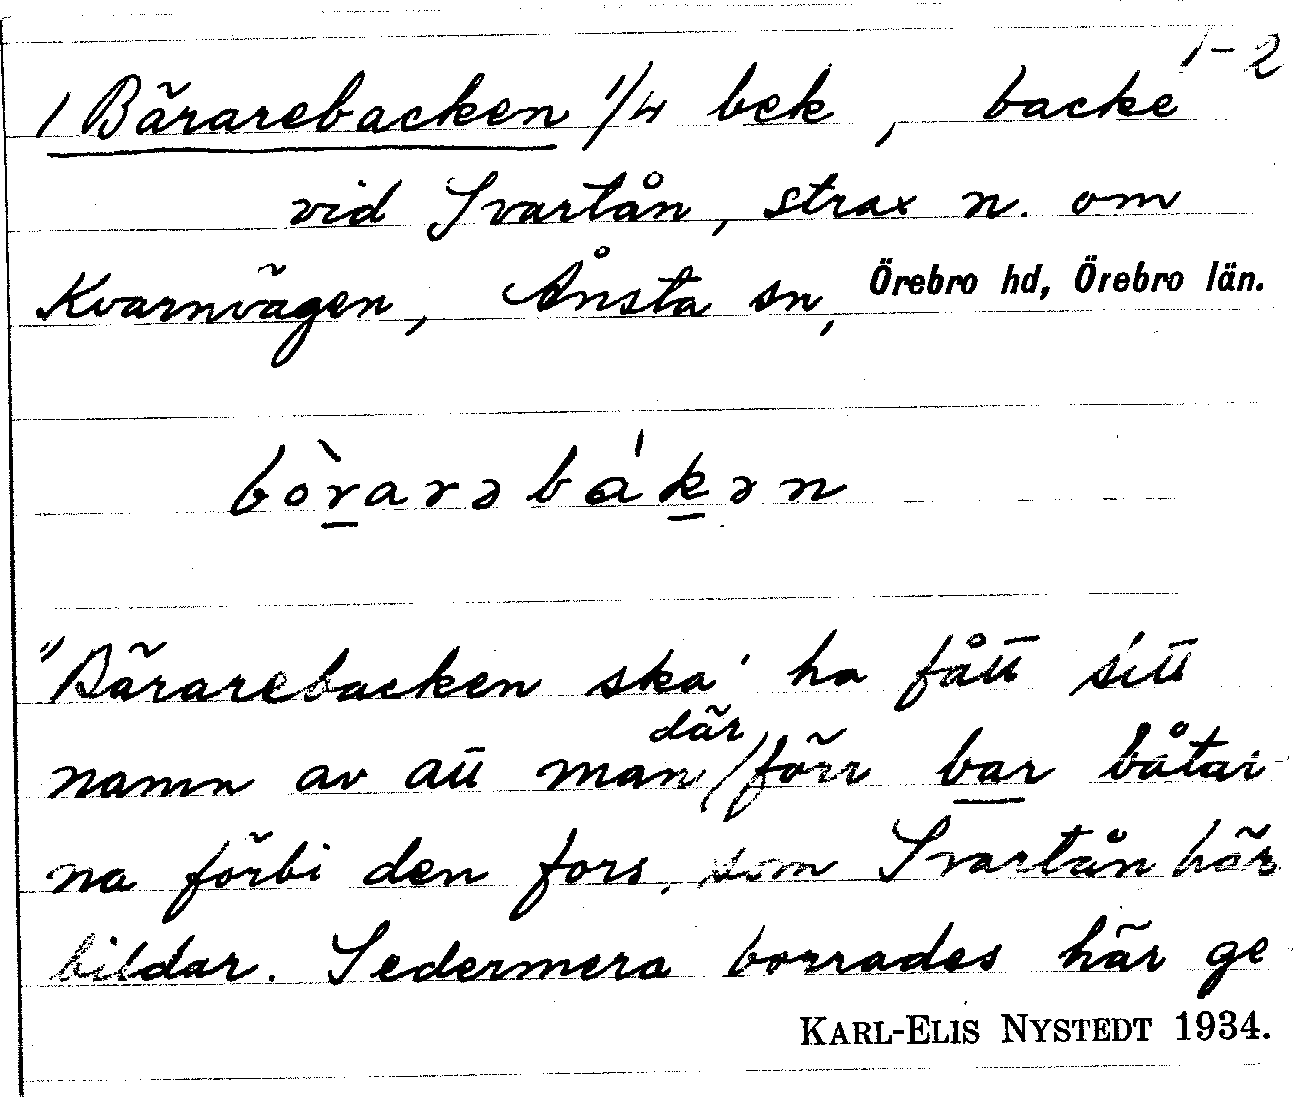 1-2
1 Bärarebacken 1/4 bek, backe
vid Svartån, strax n. om
Kvarnvägen, Ånsta sn, Örebro hd, Örebro län.
bòrarəbákən
"Bärarebacken ska' ha fått sitt
namn av att man där förr bar båtar-
na förbi den fors, som Svartån här
bildar. Sedermera borrades här ge
KARL-ELIS NYSTEDT 1934.